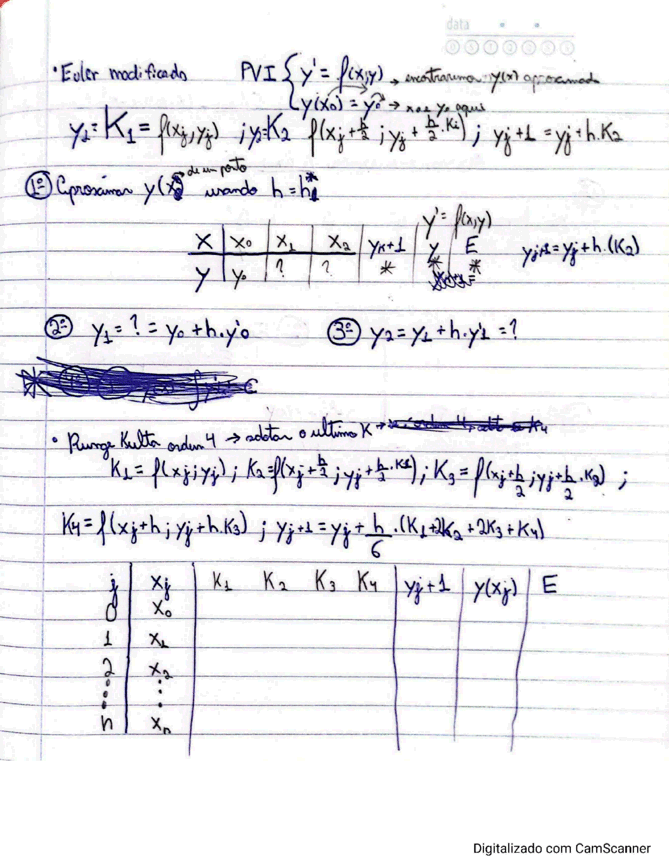 data
• Euler modificado PVI { y' = f(x,y) → encontraremos y(x) aproximado
y(x₀) = y₀ → x₀ e y₀ aqui
y₁ = K₁ = f(xj, yj) ; y₂ = K₂ f(xj + h/2 ; yj + h/2 . K₁) ; yj+1 = yj + h.K₂
1º Aproximar y(x) de um ponto usando h = h*
y' = f(x,y)
X | x₀ | x₁ | x₂ | yk+1 | y | E yj+1 = yj + h.(K₂)
Y | y₀ | ? | ? | * | * | *
2º y₁ = ? = y₀ + h.y'₀ 3º y₂ = y₁ + h.y'₁ = ?
• Runge Kulta ordem 4 → adotar o ultimo K →
K₁ = f(xj; yj) ; K₂ = f(xj + h/2 ; yj + h/2 . K₁) ; K₃ = f(xj + h/2 ; yj + h/2 . K₂) ;
K₄ = f(xj + h ; yj + h.K₃) ; yj+1 = yj + h/6 . (K₁ + 2K₂ + 2K₃ + K₄)
j | xj | K₁ K₂ K₃ K₄ | yj+1 | y(xj) | E
0 | x₀
1 | x₁
2 | x₂
⋮ | ⋮
n | xn
Digitalizado com CamScanner